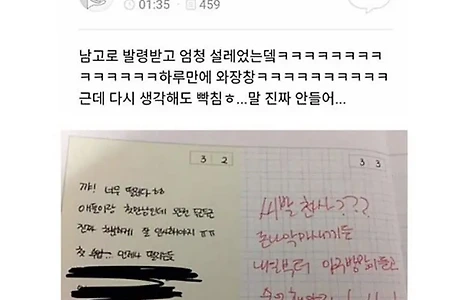 01:35 459
남고로 발령받고 엄청 설레었는뎈ㅋㅋㅋㅋㅋㅋㅋㅋ
ㅋㅋㅋㅋㅋㅋ하루만에 와장창ㅋㅋㅋㅋㅋㅋㅋㅋㅋㅋ
근데 다시 생각해도 빡침ㅎ...말 진짜 안들어...
3 2
꺄! 너무 떨린다ㅎㅎ
애들이랑 첫만남인데 완전 두근두근
진짜 착하게 잘 인사해야지 ㅠㅠ
첫
3 3
씨발 천사???
존나 악마새끼들
내일부터